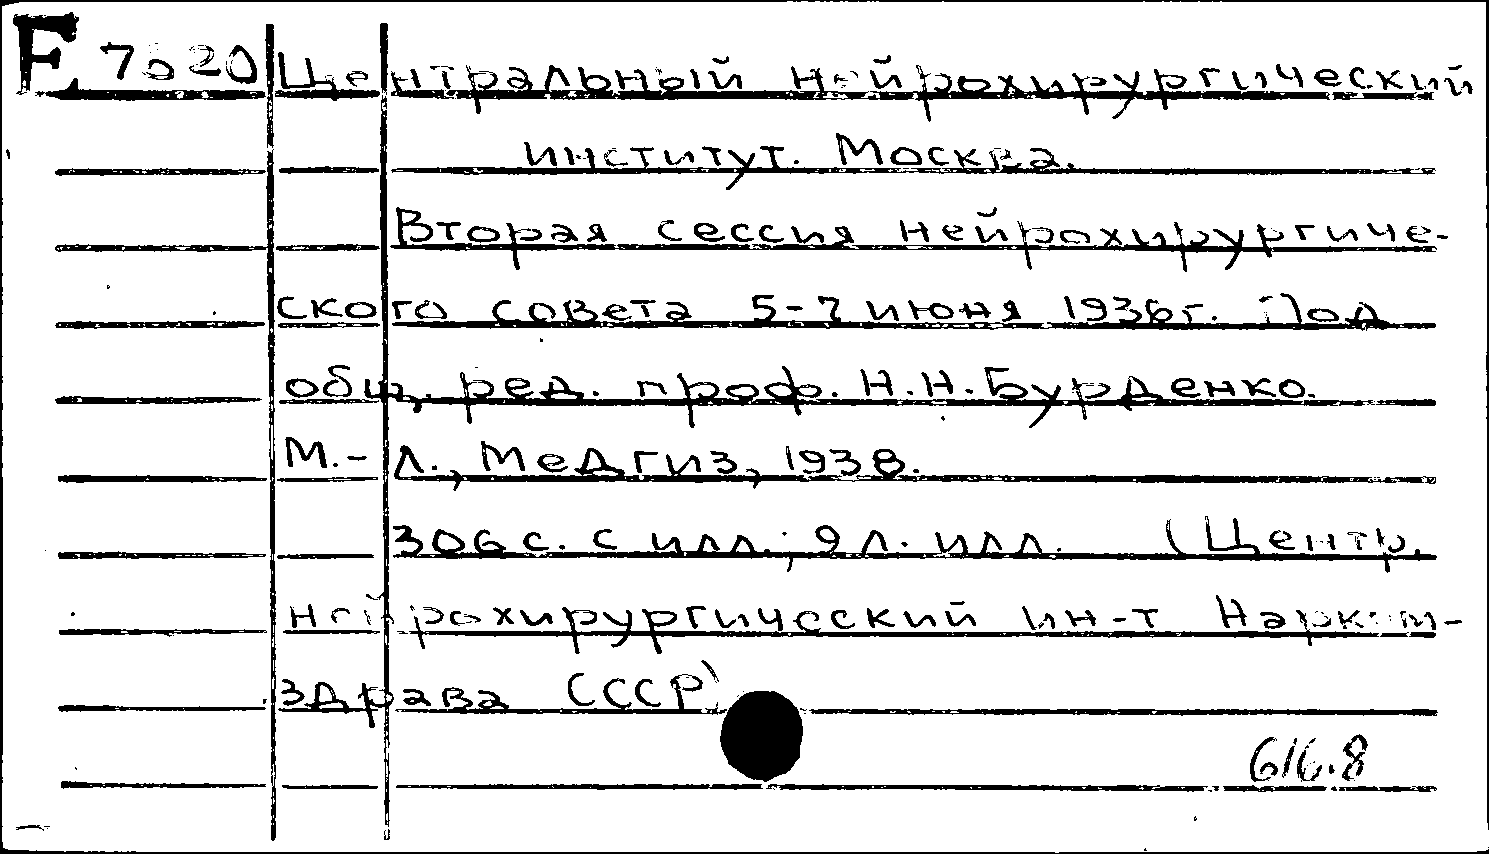 E 7520 Центральный нейрохирургический
институт. Москва.
Вторая сессия нейрохирургиче-
ского совета 5-7 июня 1936г. Под
общ. ред. проф. Н.Н. Бурденко.
М.-Л., Медгиз, 1938.
306 с. с илл.; 9 л. илл. (Центр.
нейрохирургический ин-т Нарком-
здрава СССР)
616.8